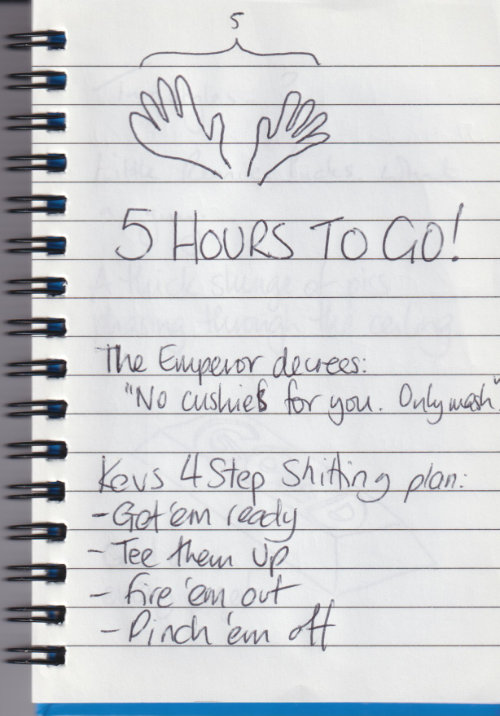 5
5 HOURS TO GO!
The Emperor decrees:
"No cushies for you. Only mash"
Kevs 4 Step Shitting plan:
- Get 'em ready
- Tee them up
- Fire 'em out
- Pinch 'em off